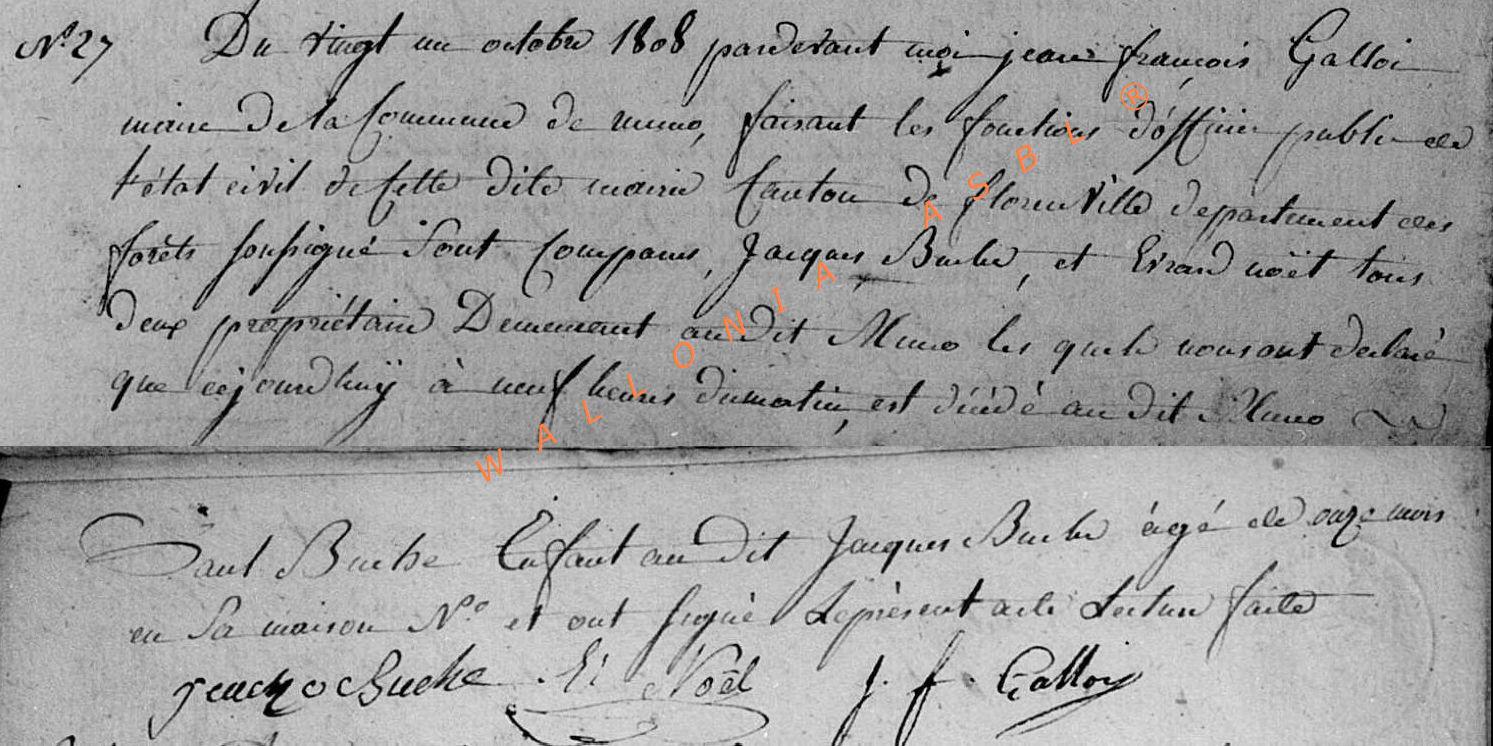 N.º 27 Du vingt un octobre 1808 pardevant moi jean françois Galloi
maire de la Commune de muno, faisant les fonctions d'officier public de
l'état civil de Cette dite mairie Canton de florenville departement des
forêts soussigné Sont Comparus, Jacques Buche, et Erard noët tous
deux propriétaire Demeurant au dit Muno les quels nous ont declaré
que cejourdhuÿ à neuf heures du matin, est décédé au dit Muno
Paul Buche Enfant au dit Jacques Buche âgé de onze mois
en Sa maison N.º et ont signé Le présent acte Lecture faite
Buche E. Noël J. f. Galloi
WALLONIA ASBL ®